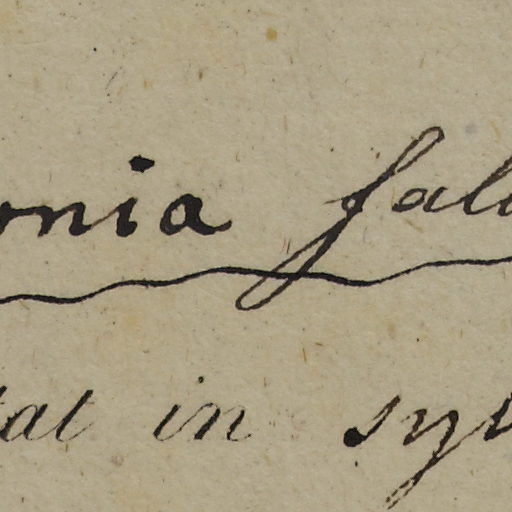 onia fal
tat in syl